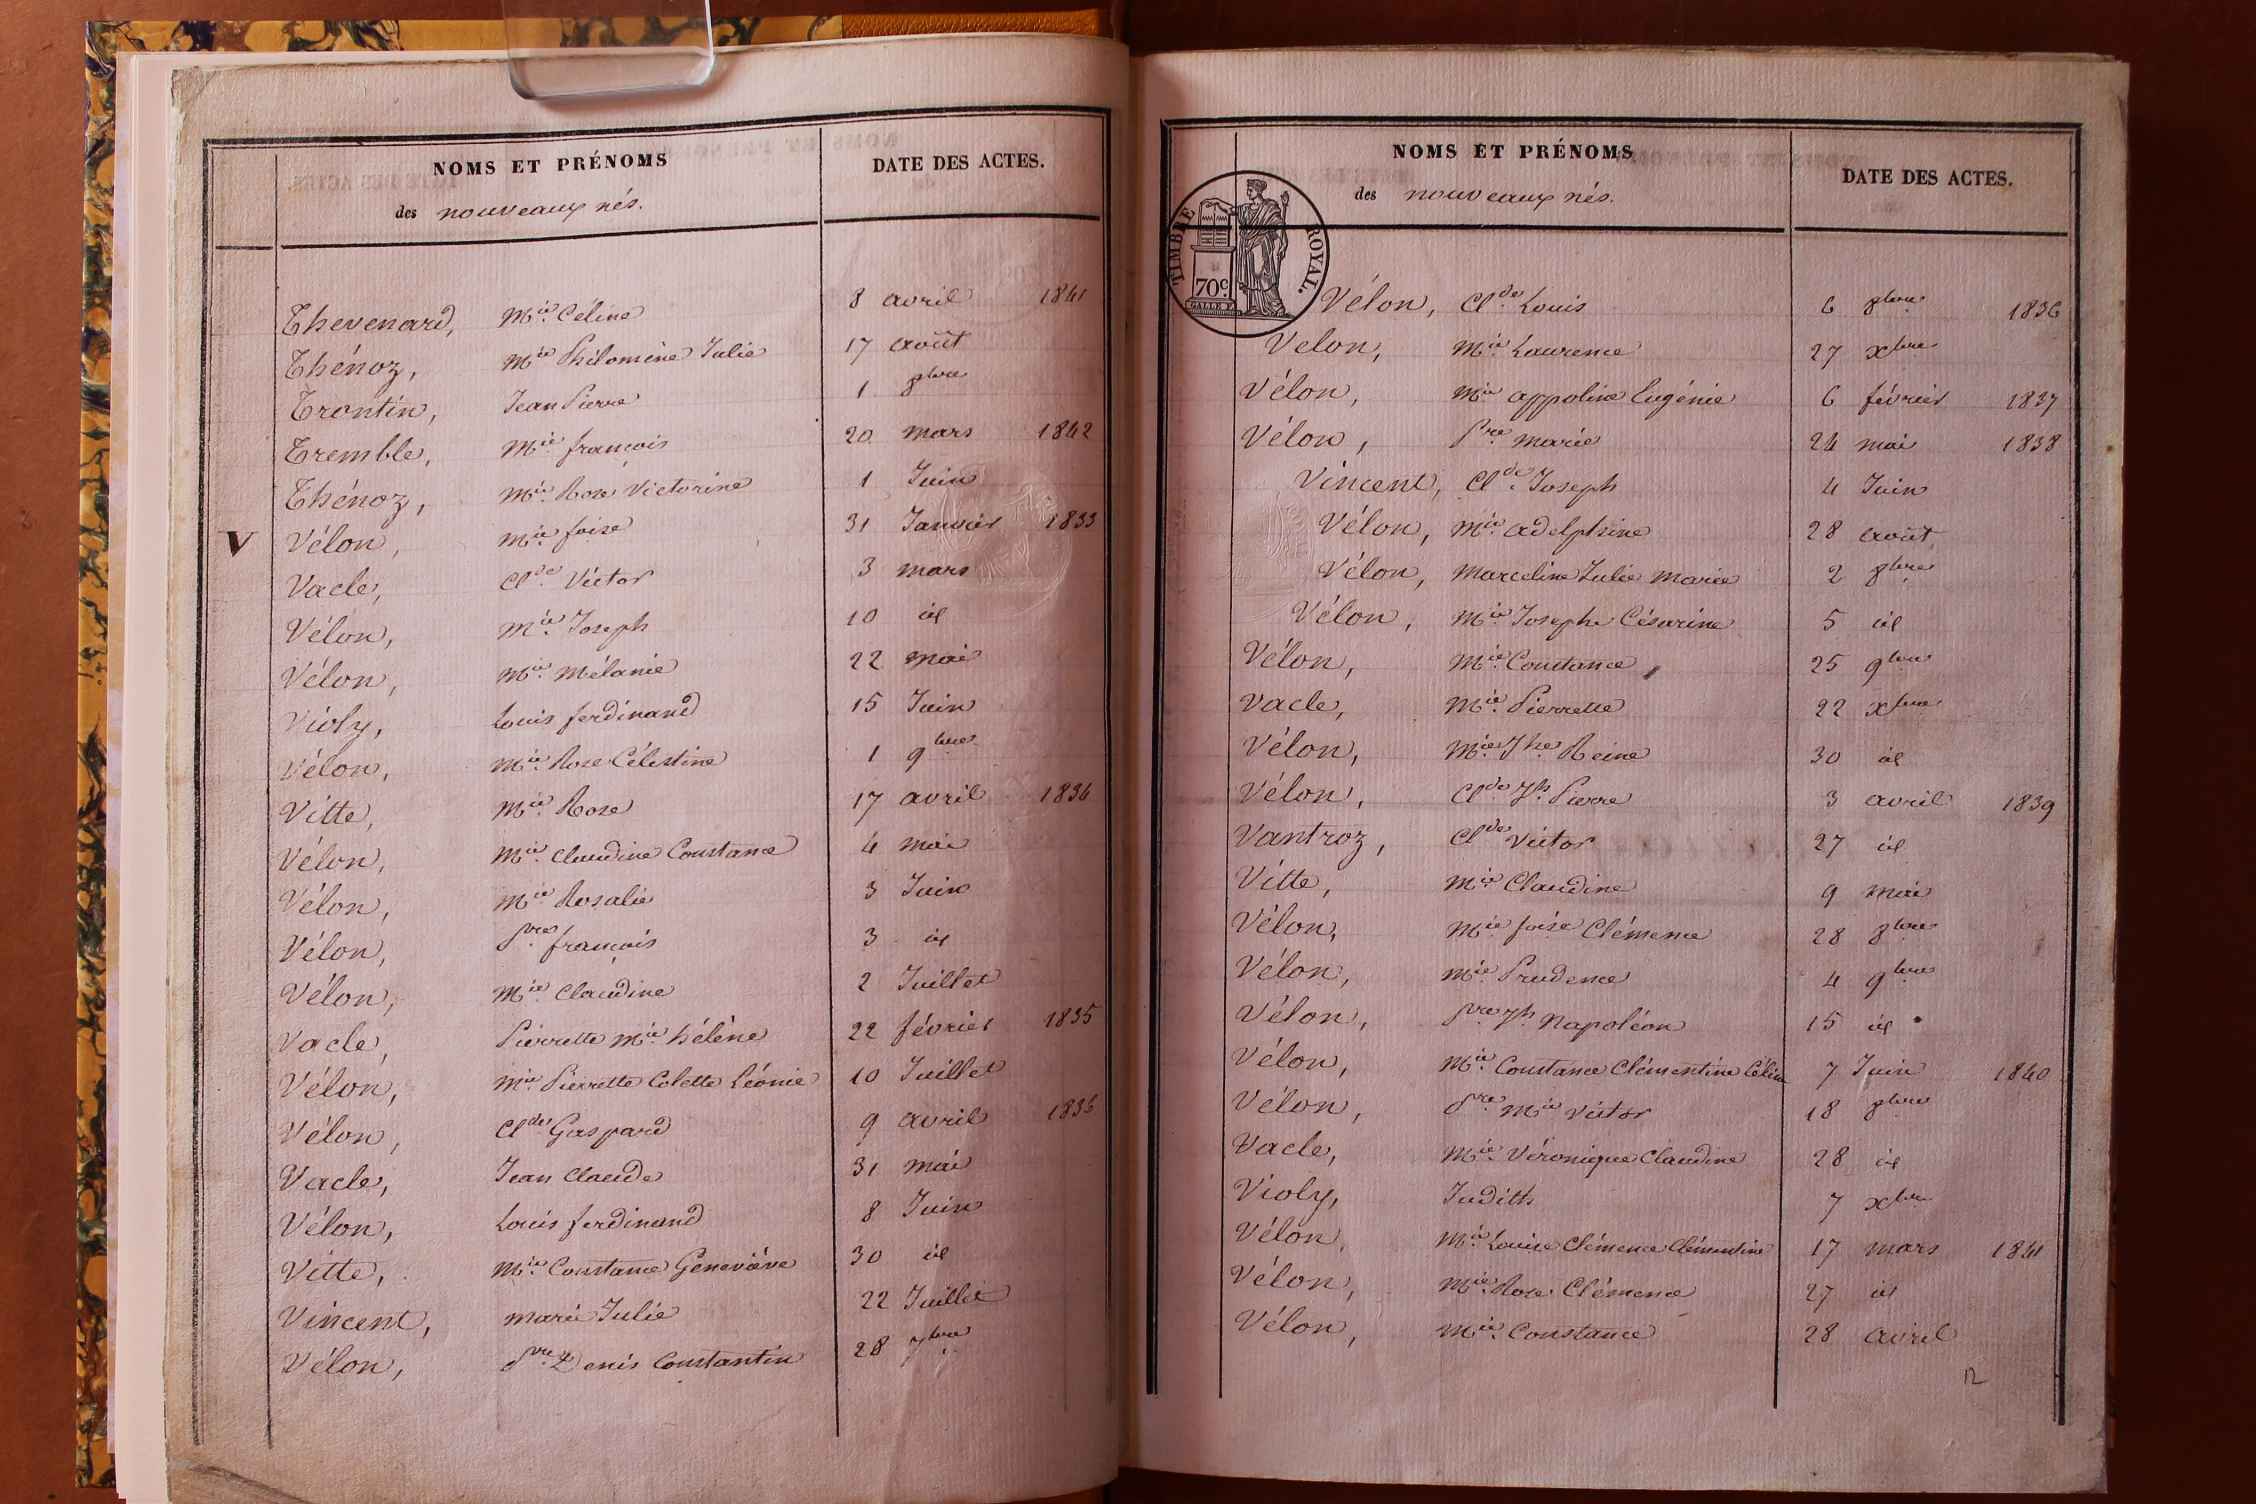 NOMS ET PRÉNOMS
DATE DES ACTES.
des nouveaux nés.
Thevenard, Mie Céline 8 avril 1841
Thénoz, Mie Philomène Julie 17 août
Trontin, Jean Pierre 1 8bre
Tremble, Mie françois 20 mars 1842
Thénoz, Mie Rose Victorine 1 Juin
V Vélon, Mie foise 31 Janvier 1833
Vacle, Clde Victor 3 mars
Vélon, Mie Joseph 10 id
Vélon, Mie Mélanie 22 mai
Violy, Louis ferdinand 15 Juin
Vélon, Mie Rose Célestine 1 9bre
Vitte, Mie Rose 17 avril 1834
Vélon, Mie Claudine Constance 4 mai
Vélon, Mie Rosalie 3 Juin
Vélon, Pre françois 3 id
Vélon, Mie Claudine 2 Juillet
Vacle, Pierrette Mie hélène 22 février 1835
Vélon, Mie Pierrette Colette Léonie 10 Juillet
Vélon, Clde Gaspard 9 avril 1836
Vacle, Jean Claude 31 mai
Vélon, Louis ferdinand 8 Juin
Vitte, Mie Constance Geneviève 30 id
Vincent, Marie Julie 22 Juillet
Vélon, Pre Denis Constantin 28 7bre
NOMS ET PRÉNOMS
DATE DES ACTES.
des nouveaux nés.
TIMBRE ROYAL.
70c.
Vélon, Clde Louis 6 8bre 1836
Velon, Mie Laurence 27 xbre
Vélon, Mie appoline Eugénie 6 février 1837
Vélon, Pre marie 24 mai 1838
Vincent, Clde Joseph 4 Juin
Vélon, Mie adelphine 28 août
Vélon, Marceline Julie Marie 2 8bre
Vélon, Mie Josephe Césarine 5 id
Vélon, Mie Constance 25 9bre
Vacle, Mie Pierrette 22 xbre
Vélon, Mie Jhe Reine 30 id
Vélon, Clde Jh Pierre 3 avril 1839
Vantroz, Clde Victor 27 id
Vitte, Mie Claudine 9 mai
Vélon, Mie foise Clémence 28 8bre
Vélon, Mie Prudence 4 9bre
Vélon, Pre Jh Napoléon 15 id
Vélon, Mie Constance Clémentine Célina 7 Juin 1840
Vélon, Pre Mie Victor 18 8bre
Vacle, Mie Véronique Claudine 28 id
Violy, Judith 7 xbre
Vélon, Mie Louise Clémence Clémentine 17 mars 1841
Vélon, Mie Rose Clémence 27 id
Vélon, Mie Constance 28 avril
12